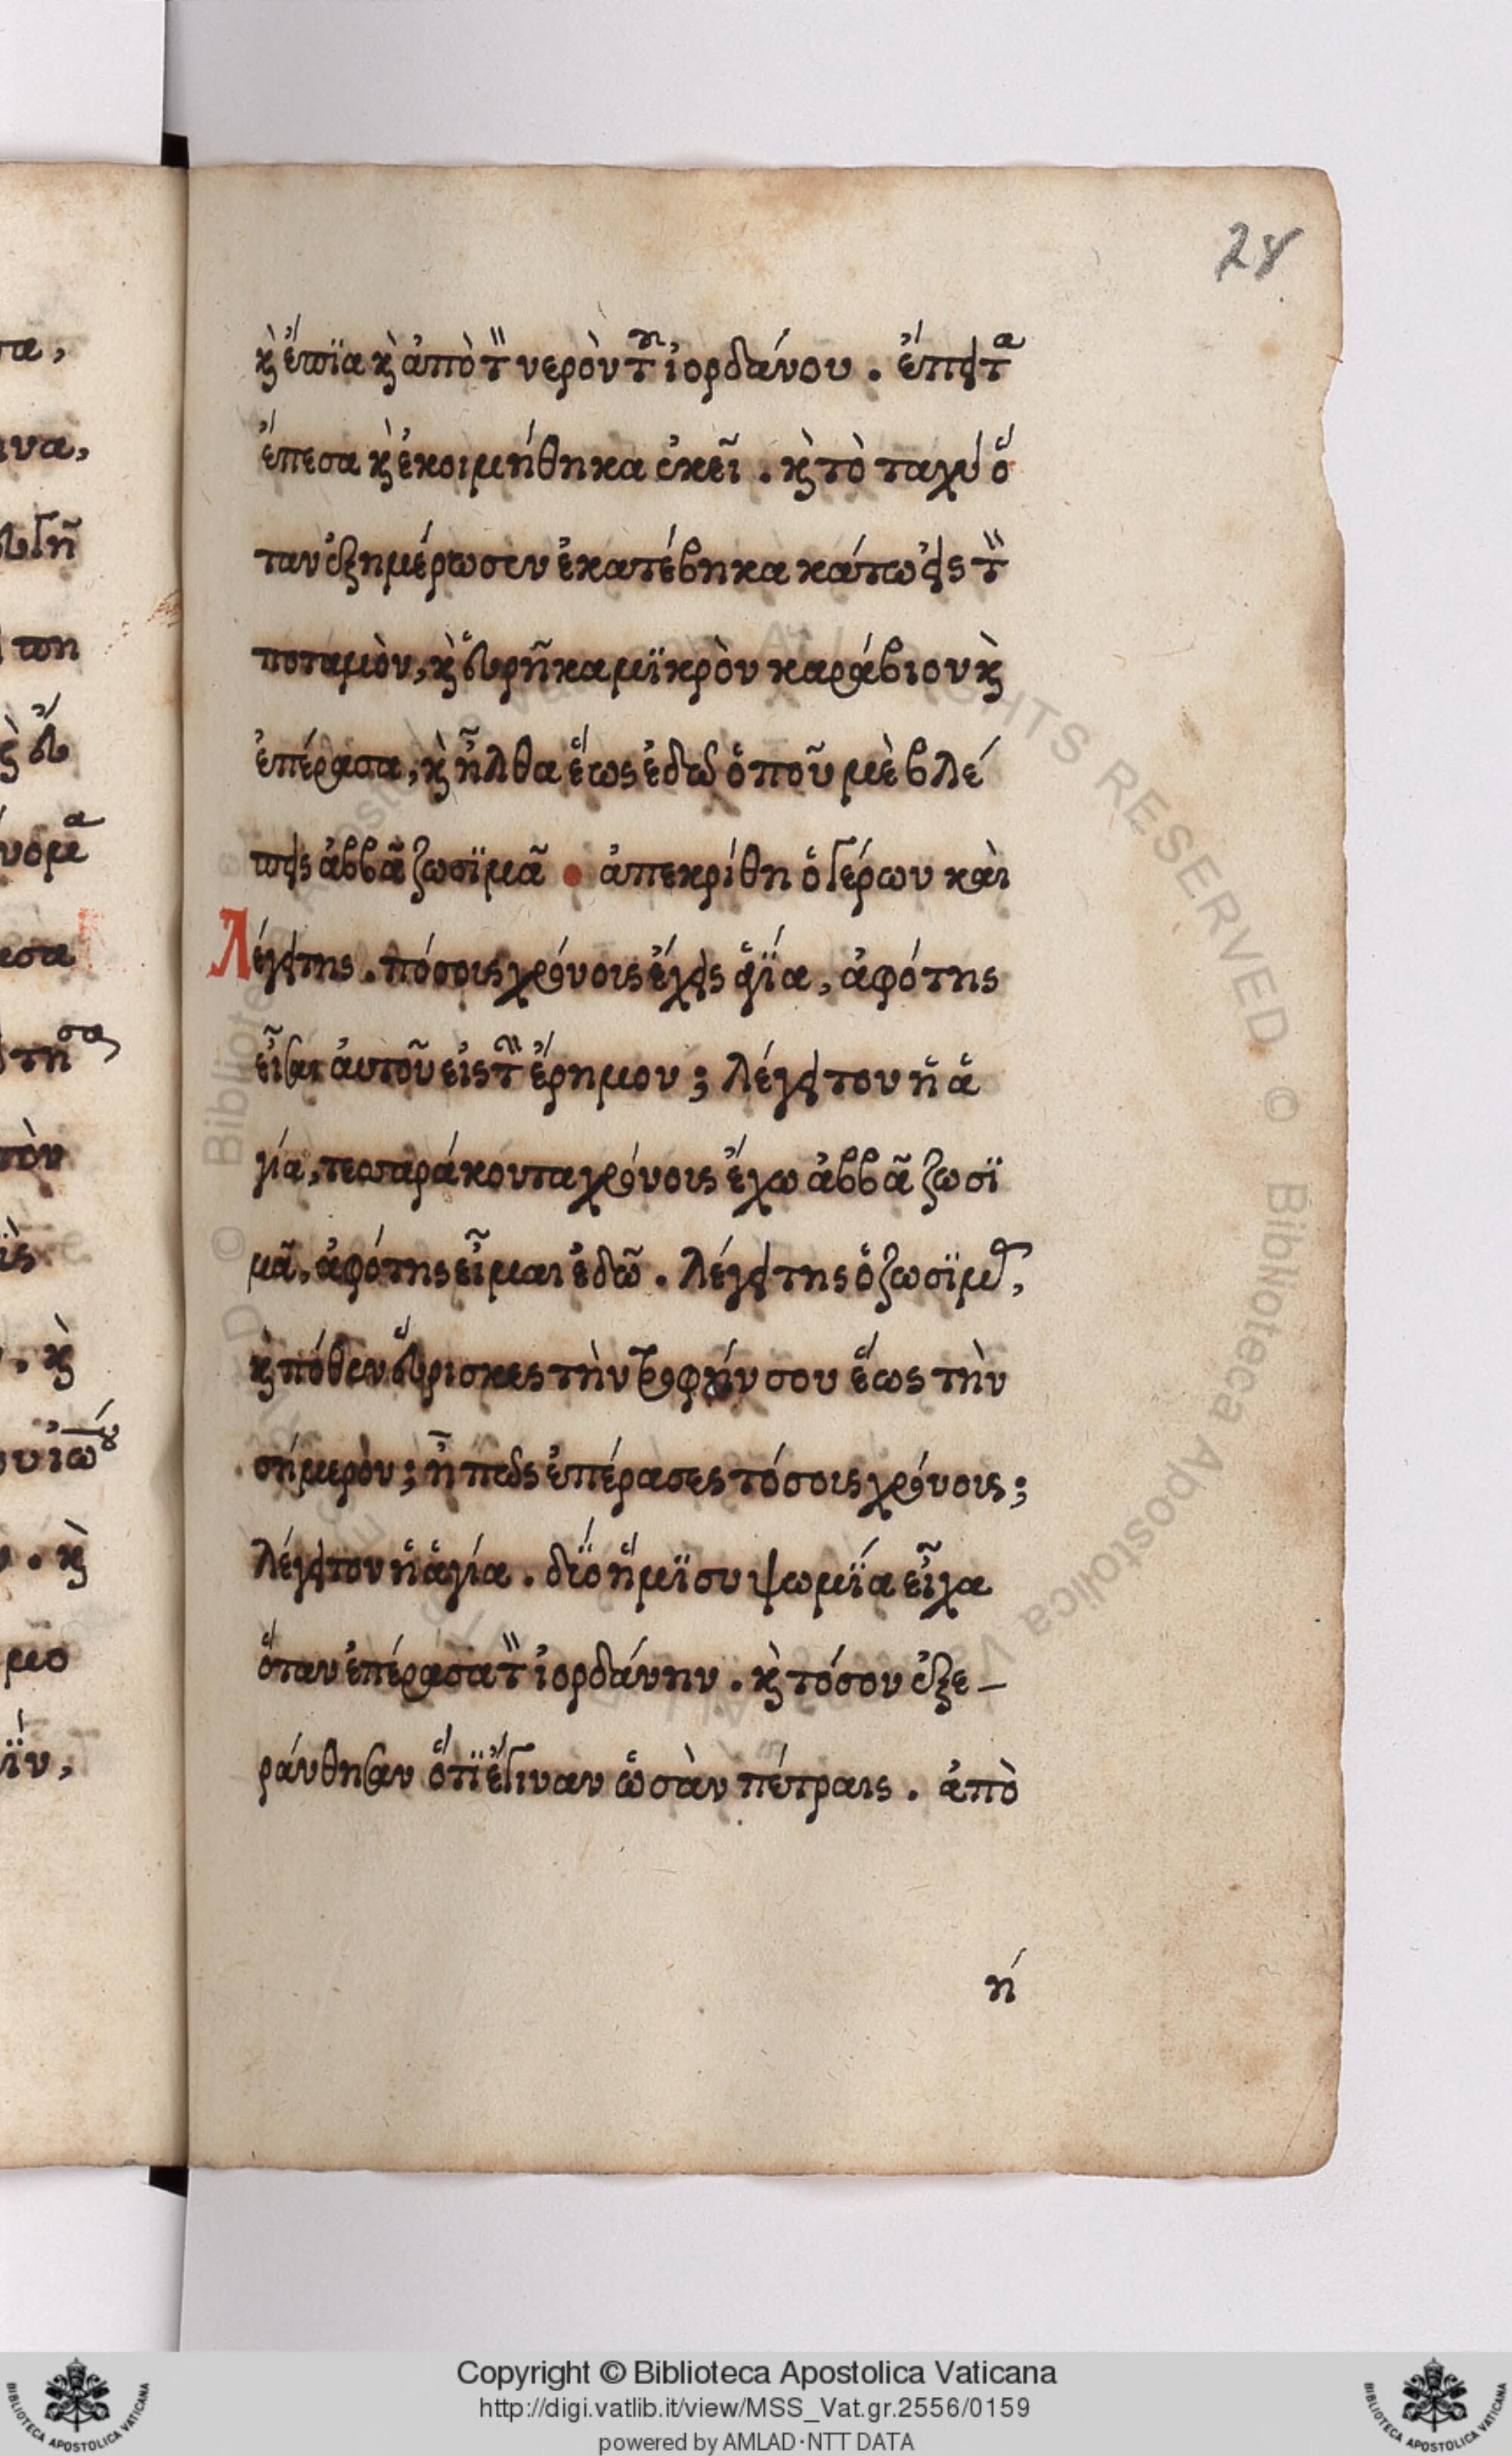 28
κὶ ἔπϊα κὶ ἀπὸ τὸν νερὸν τοῦ ἰορδάνου . ἔπειτα
ἔπεσα κὶ ἐκοιμήθηκα ἐκεῖ . κὶ τὸ ταχὺ ὅ
ταν ἐξημέρωσεν ἐκατέβηκα κάτω εἰς τὸν
ποταμὸν, κὶ εὑρῆκα μϊκρὸν καράβιον κὶ
ἐπέρασα, κὶ ἦλθα ἕως ἐδὼ ὁποῦ μὲ βλέ
πεις ἀββᾶ ζωσϊμᾶ . ἀπεκρίθη ὁ γέρων καὶ
λέγει της . πόσοις χρόνοις ἔχεις ἁγΐα, ἀφότης
εἶσαι αὐτοῦ εἰς τὴν ἔρημον ; λέγει του ἡ ἁ
γία, τεσσαράκοντα χρόνοις ἔχω ἀββᾶ ζωσϊ
μᾶ, ἀφότης εἶμαι ἐδῶ . λέγει της ὁ ζωσϊμᾶς,
κὶ πόθεν εὕρισκες τὴν τροφήν σου ἕως τὴν
σήμερον ; ἢ πῶς ἐπέρασες τόσοις χρόνοις ;
λέγει του ἡ ἁγία . δΐο ἥμϊσυ ψωμΐα εἶχα
ὅταν ἐπέρασα τὸν ἰορδάνην . κὶ τόσον ἐξε-
ράνθησαν ὅτϊ ἔγιναν ὡσὰν πέτραις . ἀπὸ
ή
Copyright © Biblioteca Apostolica Vaticana
http://digi.vatlib.it/view/MSS_Vat.gr.2556/0159
powered by AMLAD·NTT DATA